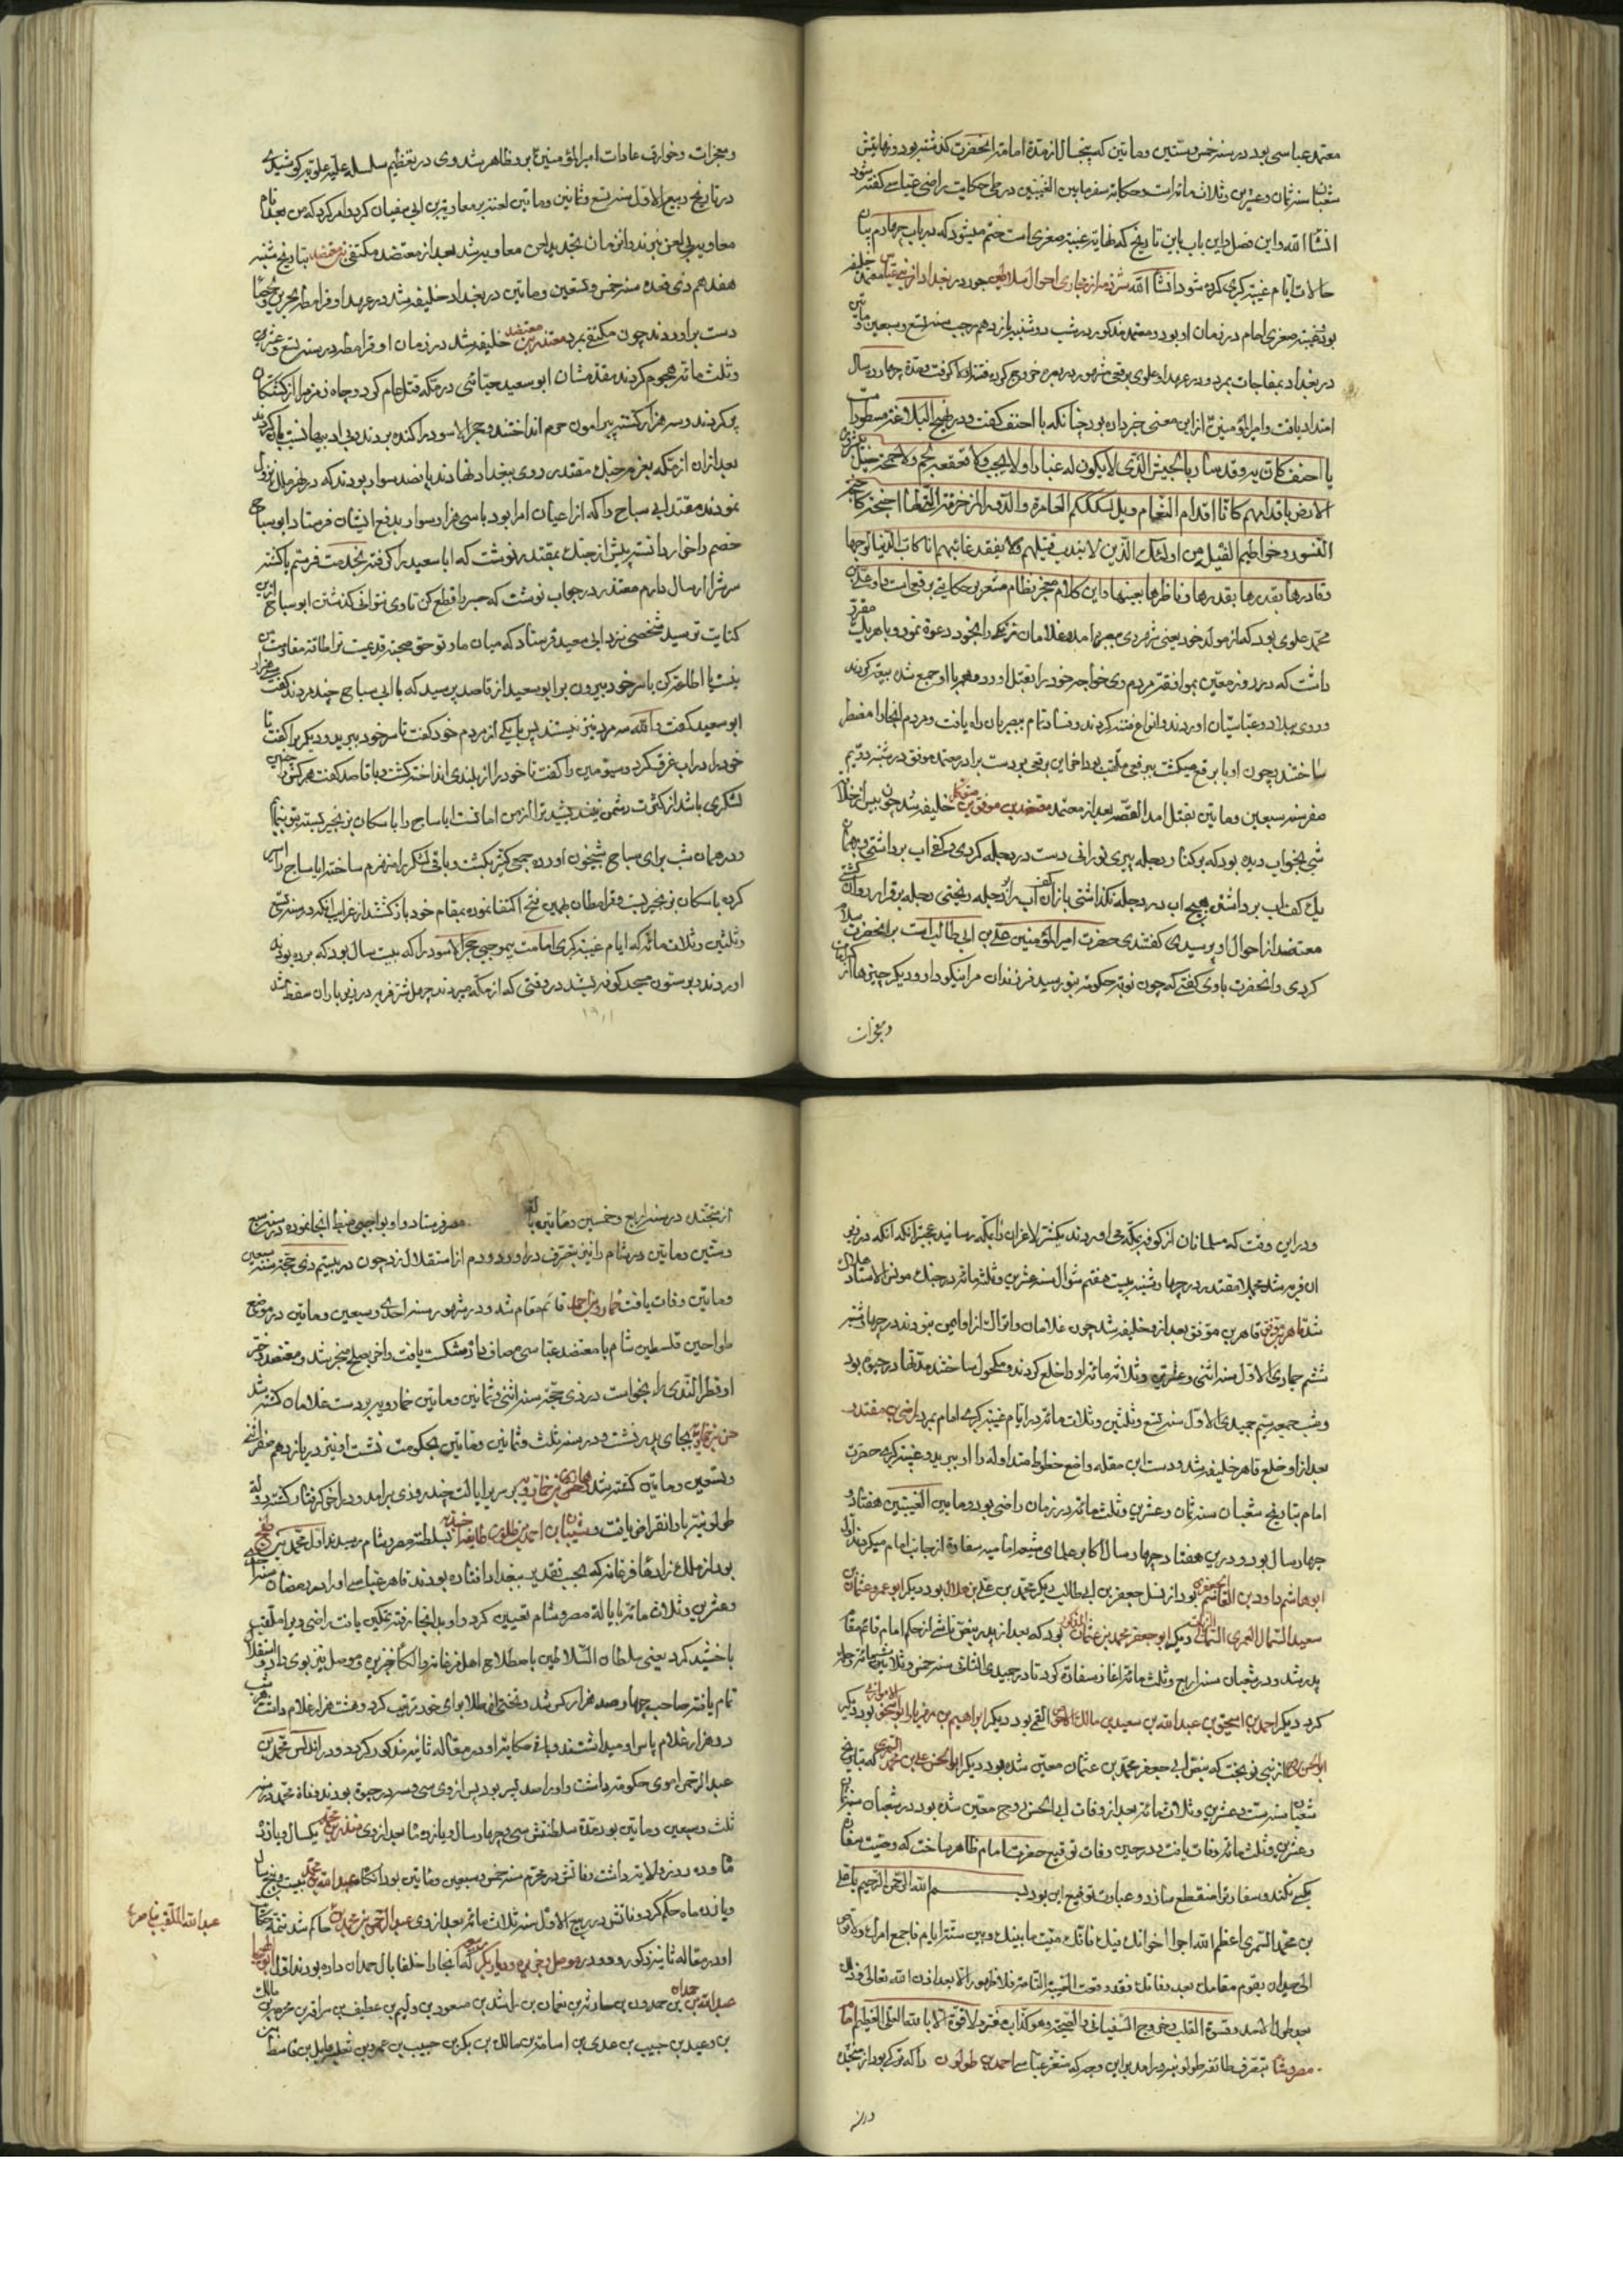 معتمد عباسی بود در سنه خمس و ستین و ماتین که پنجسال از مدة امامة انحضرت کذشته بود و نهایتش
شعبان سنه ثمان و عشرین و ثلاث مائه است و حکایة سفر مابین الغیبتین در طی حکایت راضی عباسی کفته شود
انشا الله و این فصل و این باب باین تاریخ که نهایة غیبة صغری است ختم میشود که در باب چهاردم بیان
حالات ایام غیبة کبری کرده شود انشا الله شرذمه از مجاری احوال سلاطین جور در بغداد از بنی عباس معتمد خلیفه
بود غیبة صغری امام در زمان او بود و معتمد مذکور در شب دوشنبه یازدهم رجب سنه تسع و سبعین و ماتین
در بغداد بمفاجات بمرد و در عهد او علوی برقعی مشهور در بصره خروج کرده فتنه او قوت و مدة چهارده سال
امتداد یافت و امیر المؤمنین ع از این معنی خبر داده بود چنانکه با احنف کفت و در نهج البلاغه مسطور است
یا احنف کانی به و قد سار بالجیش الذی لا یکون له غبار و لا لجب و لا قعقعة لجم و لا حمحمة خیل یثیرون
الارض باقدامهم کانها اقدام النعام ویل لسککم العامرة و الدور المزخرفة التی لها اجنحة کاجنحة
النسور و خراطیم کخراطیم الفیلة من اولئک الذین لا یندب قتیلهم و لا یفقد غائبهم انا کاب الدنیا لوجهها
و قادرها بقدرها و ناظرها بعینها و این کلام معجز نظام مشعر بر حکایتی برقعی است و او علی بن
محمد علوی بود که از مولد خود یعنی شهر ری ببصره امده غلامان زنکی را بخود دعوة نمود و با هر یک مقرر
داشت که در روز معین بموافقة مردم وی خواجه خود را بقتل اورد و همه با او جمع شده بیعة کردند
و روی ببلاد و عباسیان اوردند و انواع فتنه کردند و فساد تمام ببصریان راه یافت و مردم انجا را مضطر
ساختند و چون او با برقع میکشت ببرقعی ملقب بود اخر این برقعی بر دست برادر معتمد موفق در شنبه دویم
صفر سنه سبعین و ماتین بقتل امد القصه بعد از معتمد معتضد بن موفق بن متوکل خلیفه شد چون پیش از خلافة
شبی بخواب دیده بود که بر کنار دجله پیری نورانی دست در دجله کردی و کف اب برداشتی و بهمان
یک کف اب برداشتن هیچ اب در دجله نکذاشتی باز ان کف آب را در دجله ریختی دجله برقرار روان کشتی
معتضد از احوال او پرسیدی کفتندی حضرت امیر المؤمنین علی بن ابی طالب است بر انحضرت سلام
کردی و انحضرت باوی کفتی که چون نوبة حکومة بتو رسد فرزندان مرا نیکو دار و دیکر چیزها از کرامات
و معجزات
و معجزات و خوارق عادات امیر المؤمنین ع برو ظاهر شد وی در تعظیم سلسله علیه علویه کوشیدی
در تاریخ ربیع الاول سنه تسع و ثمانین و ماتین لعنة بر معاویة بن ابی سفیان کرد و امر کرد که من بعد نام
معاویه بی لعن نبرند و ازمان تجدید لعن معاویه شد بعد از معتضد مکتفی بن معتضد بتاریخ شنبه
هفدهم ذی قعده سنه خمس و تسعین و ماتین در بغداد خلیفه شد در عهد او قرامطه بحرین و لحسا
دست براوردند چون مکتفی بمرد مقتدر بن معتضد خلیفه شد در زمان او قرامطه در سنه تسع و عشرین
و ثلث مائه هجوم کردند مقدمشان ابو سعید جنابی در مکه قتل عام کرد و چاه زمزم را از کشتکان
پر کردند و سه هزار کشته پیرامون حرم انداختند و حجر الاسود را کنده بردند و بی ادبیها نسبت بان کردند
بعد از ان از مکه بعزم جنک مقتدر روی ببغداد نهادند پانصد سوار بودند که در نهر ملک نزول
نمودند مقتدر ابی سباج را که از اعیان امرا بود با سی هزار سوار بدفع ایشان فرستاد ابو سباج
خصم را خوار دانسته پیش از جنک بمقتدر نوشت که ابا سعید را کرفته بخدمت فرستم یا کشته
سرش را ارسال دارم مقتدر در جواب نوشت که جسر را قطع کن تا وی نتوانی کذشتن ابو سباج از این
کنایت ترسید شخصی نزد ابی سعید فرستاد که میان ما و تو حق صحبة قدیمیت ترا طاقة مقاومت من
نیست یا اطاعة کن یا سر خود بیرون بر ابو سعید از قاصد پرسید که با ابی سباج چند مردند کفت سی هزار
ابو سعید کفت والله سه مرد نیز نیستند پس با یکی از مردم خود کفت تا سر خود ببرید و دیکریرا کفت تا
خود را در اب غرق کرد و سیومین را کفت تا خود را از بلندی انداخته کشت و با قاصد کفت هر کرا چنین
لشکری باشد از کثرت دشمن نیندیشد ترا از من امانست ابا ساج را با سکان بزنجیر بسته بتو بنمایم
و در همان شب بر ابی سباج شبیخون اورده جمعی کثیر بکشت و باقی لشکر را منهزم ساخته ابا ساج را اسیر
کرده با سکان بزنجیر بست و قرامطان بهمین فتح اکتفا نموده بمقام خود بازکشتند از غرایب انکه در سنه تسع
و ثلثین و ثلاث مائه که ایام غیبة کبری امامت بیموجبی حجر الاسود را که بیست سال بود که برده بودند
اوردند و بر ستون مسجد کوفه بستند در وقتی که از مکه میبردند چهل شتر فربه در زیر باران سقط شد
و در این وقت که مسلمانان از کوفه بمکه می اوردند بیکشتر لاغر ان را بمکه رسانید عجبتر انکه انکه در زیر
ان فربه شد مجملا مقتدر در چهارشنبه بیست هفتم شوال سنه عشرین و ثلثمائه در جنک مونس الاستاد هلاک
شد قاهر بن موفق بعد از و خلیفه شد چون غلامان و اتراک از او ایمن نبودند در چهارشنبه
ششم جمادی الاول سنه اثنی و عشرین و ثلاثمائه او را خلع کردند و مکحول ساختند مدتها در حیوة بود
و شب جمعه سیم جمیدی الاول سنه تسع و ثلثین و ثلاث مائه در ایام غیبة کبری امام بمرد راضی بن مقتدر
بعد از او خلع قاهر خلیفه شد و دست ابن مقله واضع خطوط متداوله را او ببرید و غیبة کبری حضرت
امام بتاریخ شعبان سنه ثمان و عشرین و ثلث مائه در زمان راضی بود و مابین الغیبتین هفتاد و
چهار سال بود و در این هفتاد چهار سال اکابر علمای شیعه امامیه سفارة از جانب امام میکردند اول
ابو هاشم داود بن القاسم الجعفری بود از نسل جعفر بن ابی طالب دیکر محمد بن علی بن هلال بود دیکر ابو عمرو عثمان بن
سعید السمان العمری دیکر ابو جعفر محمد بن عثمان بود که بعد از پدر بنص ناشی از حکم امام قائم مقام
پدر شد و در شعبان سنه اربع و ثلث مائه اغاز سفارة کرد تا در جمیدی الثانی سنه خمس و ثلاثین
کرد دیکر احمد بن اسحق بن عبد الله بن سعید بن مالک الاحوص القمی بود دیکر ابراهیم بن مهزیار الاهوازی بود دیکر
از بنی نوبخت که بنص ابی جعفر محمد بن عثمان معین شده بود دیکر ابو الحسن علی بن محمد السمری که بتاریخ
شعبان سنه ست و عشرین و ثلاث مائه بعد از وفات ابی الحسن روح معین شده بود در شعبان سنه ثمان
و عشرین و ثلث مائه وفات یافت و در حین وفات توقیع حضرت امام ظاهر ساخت که وصیت سفارة
بکسی نکند و سفارة را منقطع سازد و عبارت توقیع این بود بسم الله الرحمن الرحیم یا علی
بن محمد السمری اعظم الله اجر اخوانک فیک فانک میت ما بینک و بین ستة ایام فاجمع امرک و لا توص
الی احد ان یقوم مقامک بعد وفاتک فقد وقعت الغیبة التامة فلا ظهور الا بعد اذن الله تعالی و ذلک
بعد طول الامد و قسوة القلب و خروج السفیانی و الصیحة و هو کذاب مفتر و لا قوة الا بالله العلی العظیم اما
مصر و شام بتصرف طائفه طولونیه درامد بر این وجه که معتز عباسی احمد بن طولون را که ترکی بود از
در سنه
از منجند در سنه اربع و خمسین و ماتین بایالة مصر فرستاد و او بواجبی ضبط انجا نموده در سنه سبع
و ستین و ماتین در شام را نیز بتصرف دراورد و دم از استقلال زد چون در بیستم ذی حجة سنه سبعین
و ماتین وفات یافت خمارویه بن احمد قائم مقام شد و در شهور سنه احدی و سبعین و ماتین در موضع
طواحین فلسطین شام با معتضد عباسی مصاف داد شکست یافت و اخر بصلح منجر شد و معتضد دختر
او قطر الندی را بخواست در ذی حجة سنه اثنی و ثمانین و ماتین خمارویه بر دست غلامان کشته شد
بجای پدر نشست و در سنه ثلث و ثمانین و ماتین بحکومت نشست او نیز در یازدهم صفر
و تسعین و ماتین کشته شد هارون بن خمارویه بر سریر ایالت چند روزی برامد و دیکر اخر کرفتار کشته دولة
طولونیه باو انقراض یافت و شیبان بن احمد بن طولون طایفه اخشیدیه بسلطنة مصر و شام رسیدند اول محمد بن طغج
بود از ملک زادهای فرغانه که بحسب تقدیر ببغداد افتاده بودند قاهر عباسی او را در رمضان سنه
و عشرین و ثلاث مائه بایالة مصر و شام تعیین کرد و او بدانجا رفته تمکین یافت راضی ویرا ملقب
باخشید کرد یعنی سلطان السلاطین باصطلاح اهل فرغانه و الکا جزیره و موصل نیز بوی داد و استقلال
تمام یافته صاحب چهارصد هزار کس شد و تختی از طلا برای خود ترتیب کرد و هشت هزار غلام داشت هر شب
دو هزار غلام پاس او میداشتند و باقی حکایة او در مقاله ثانیه مذکور کردد و در اندلس محمد بن
عبد الرحمن اموی حکومة داشت و او را صد پسر بود پس از وی سی و سه در حیوة بودند وفاة محمد در سنه
ثلث و سبعین و ماتین بود مدة سلطنتش سی و چهار سال و یازده ماه بعد از وی منذر بن محمد یکسال و یازده
ماه و ده روز ولایة داشت وفاتش در محرم سنه خمس و سبعین و ماتین بود انکاه عبد الله بن محمد بیست و پنج سال
و یازده ماه حکم کرد وفاتش در ربیع الاول سنه ثلاث مائه بعد از وی عبد الرحمن بن محمد حاکم شد
عبد الله الملقب بناصر
او در مقاله ثانیه مذکور رود و در موصل و جزیره و دیار بکر که انجا را خلفا بال حمدان داده بودند اول
عبد الله بن حمدان بن حمدون بن حارث بن نعمان بن راشد بن مسعود بن دلیم بن عطیف بن مالک
بن عدی بن اسامة بن مالک بن بکر بن حبیب بن عمرو بن